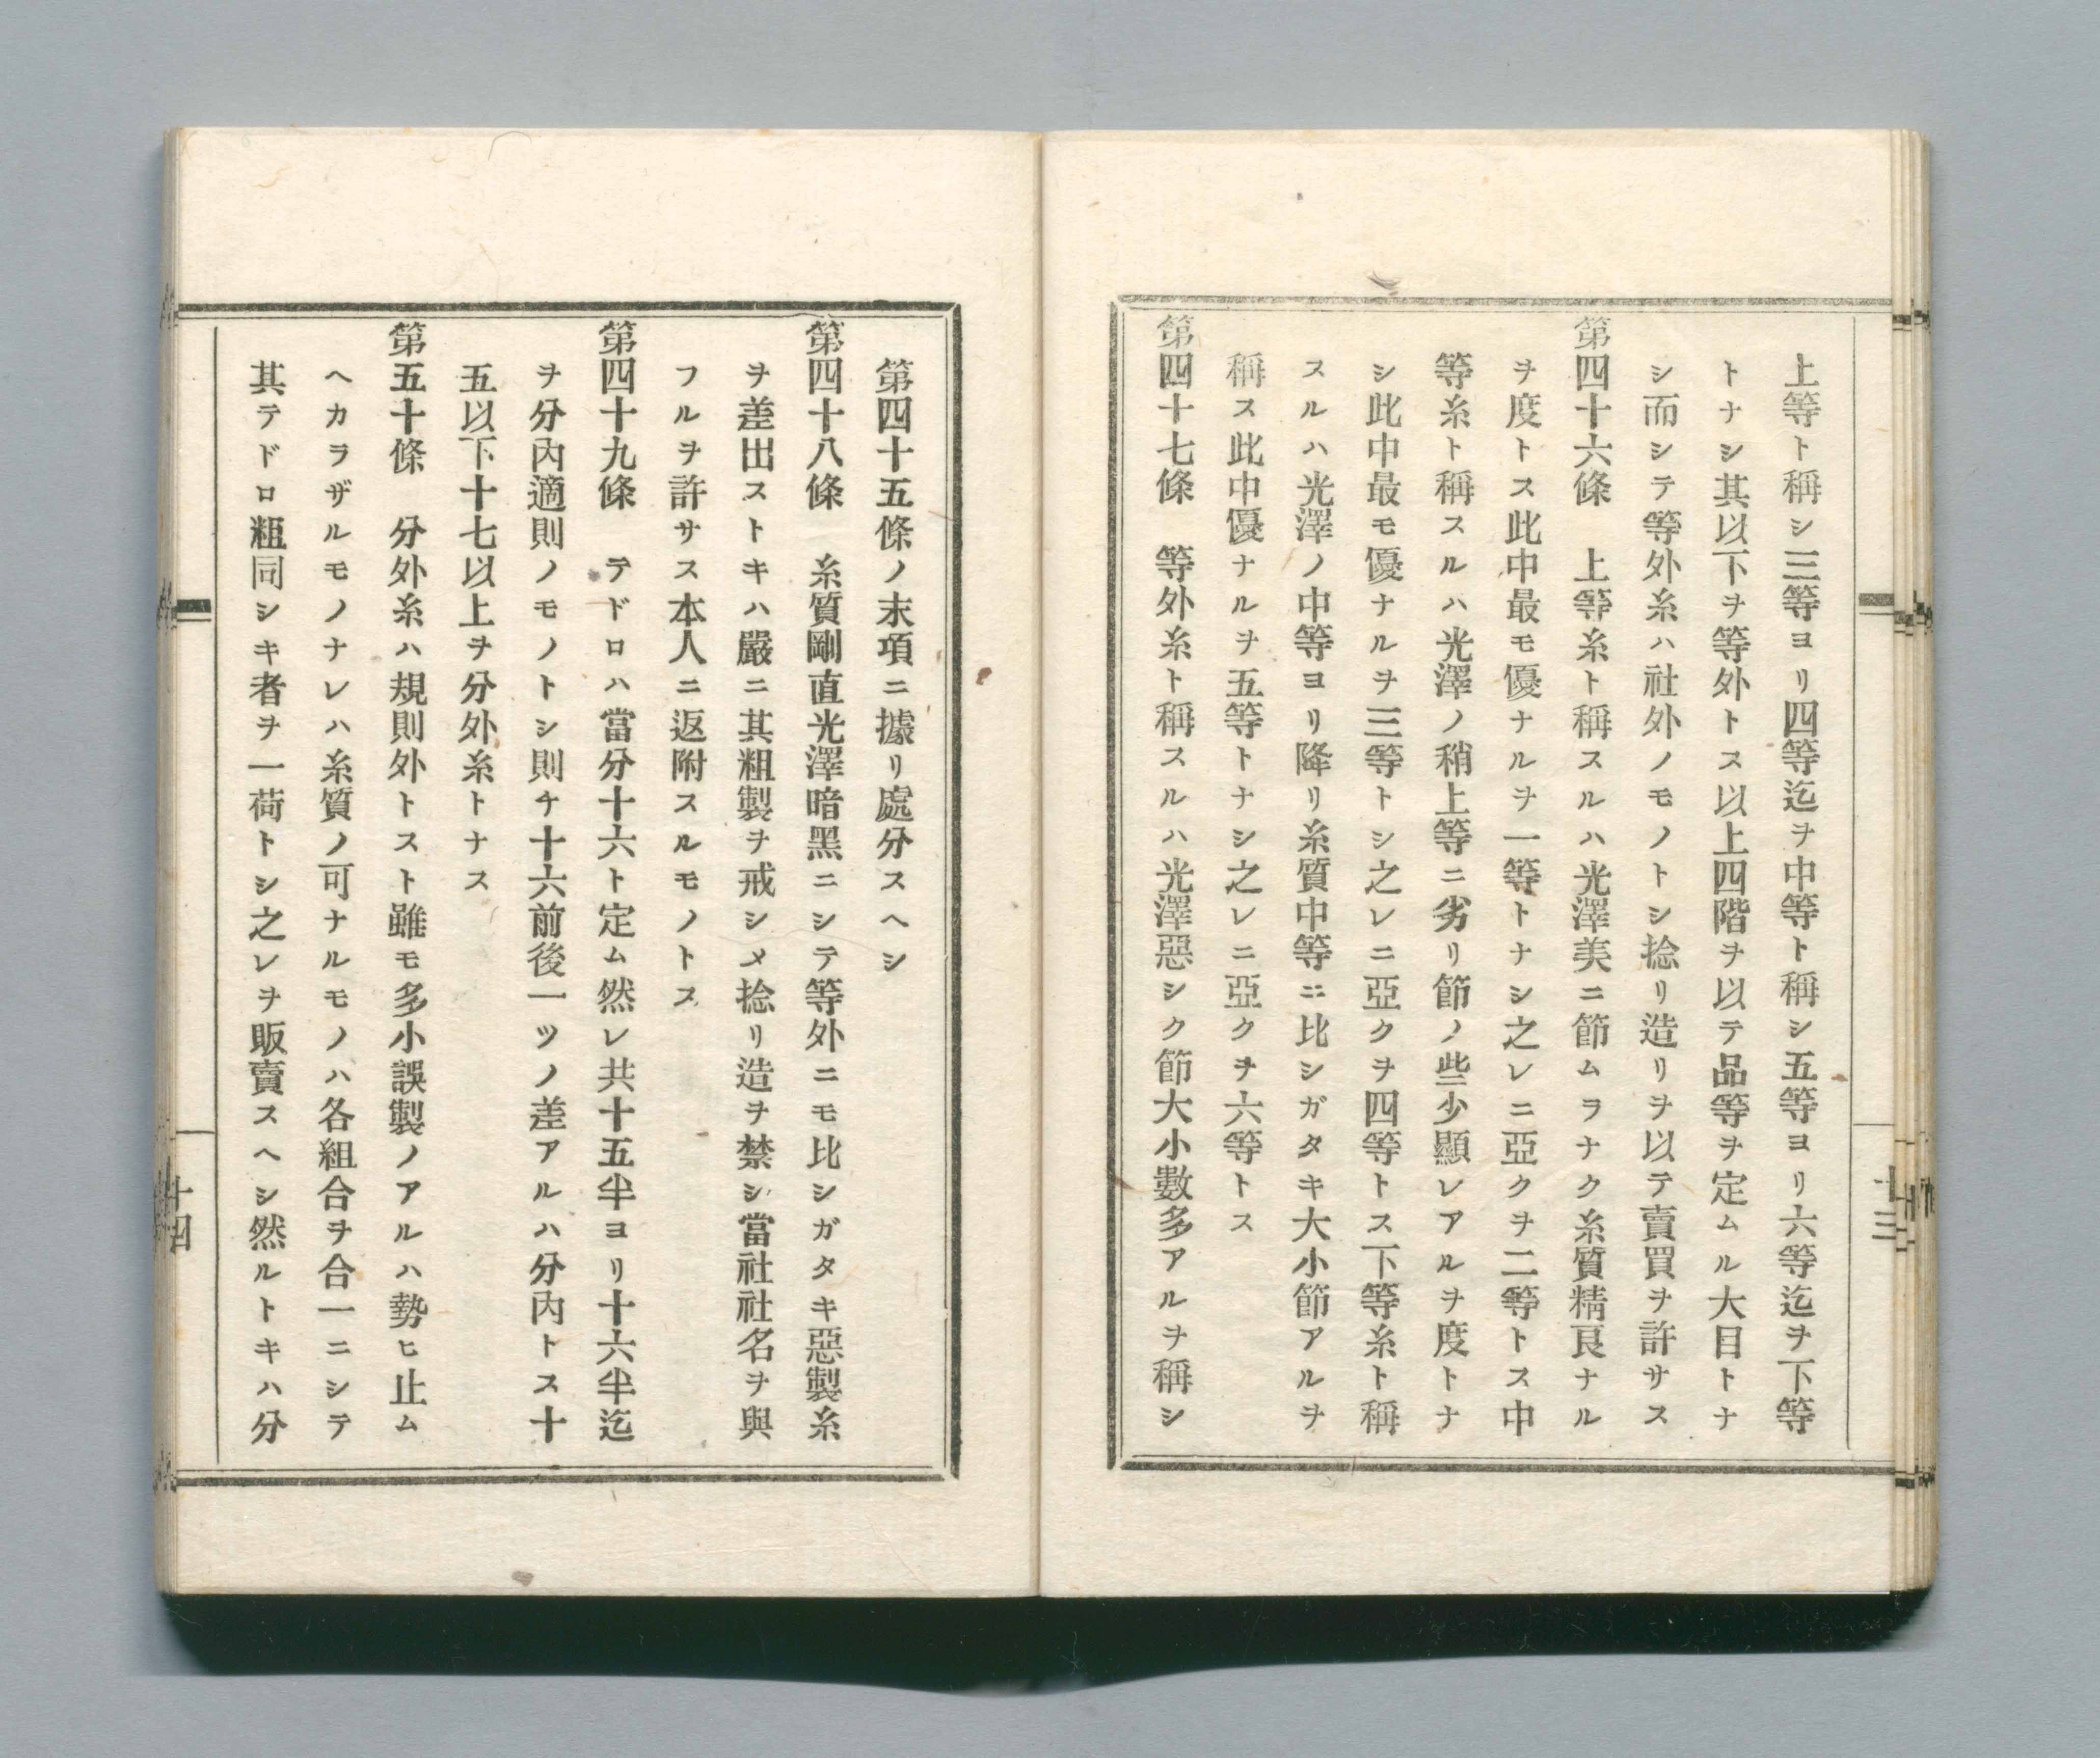 上等ト稱シ三等ヨリ四等迄ヲ中等ト稱シ五等ヨリ六等迄ヲ下等
トナシ其以下ヲ等外トス以上四階ヲ以テ品等ヲ定ムル大目トナ
シ而シテ等外糸ハ社外ノモノトシ捻リ造リヲ以テ賣買ヲ許サス
第四十六條　上等糸ト稱スルハ光澤美ニ節ムラナク糸質精良ナル
ヲ度トス此中最モ優ナルヲ一等トナシ之レニ亞クヲ二等トス中
等糸ト稱スルハ光澤ノ稍上等ニ劣リ節ノ些少顯レアルヲ度トナ
シ此中最モ優ナルヲ三等トシ之レニ亞クヲ四等トス下等糸ト稱
スルハ光澤ノ中等ヨリ降リ糸質中等ニ比シガタキ大小節アルヲ
稱ス此中優ナルヲ五等トナシ之レニ亞クヲ六等トス
第四十七條　等外糸ト稱スルハ光澤惡シク節大小數多アルヲ稱シ
十三
第四十五條ノ末項ニ據リ處分スヘシ
第四十八條　糸質剛直光澤暗黑ニシテ等外ニモ比シガタキ惡製糸
ヲ差出ストキハ嚴ニ其粗製ヲ戒シメ捻リ造ヲ禁シ當社社名ヲ與
フルヲ許サス本人ニ返附スルモノトス
第四十九條　テドロハ當分十六ト定ム然レ共十五半ヨリ十六半迄
ヲ分內適則ノモノトシ則チ十六前後一ツノ差アルハ分內トス十
五以下十七以上ヲ分外糸トナス
第五十條　分外糸ハ規則外トスト雖モ多小誤製ノアルハ勢ヒ止ム
ヘカラザルモノナレハ糸質ノ可ナルモノハ各組合ヲ合一ニシテ
其テドロ粗同シキ者ヲ一荷トシ之レヲ販賣スヘシ然ルトキハ分
十四